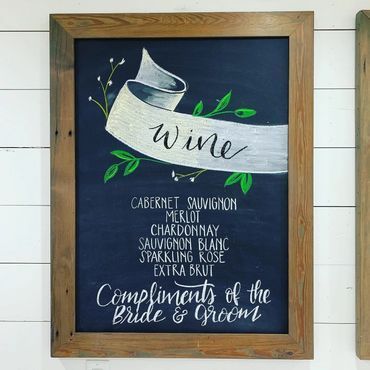 Wine
CABERNET SAUVIGNON
MERLOT
CHARDONNAY
SAUVIGNON BLANC
SPARKLING ROSE
EXTRA BRUT
Compliments of the
Bride & Groom